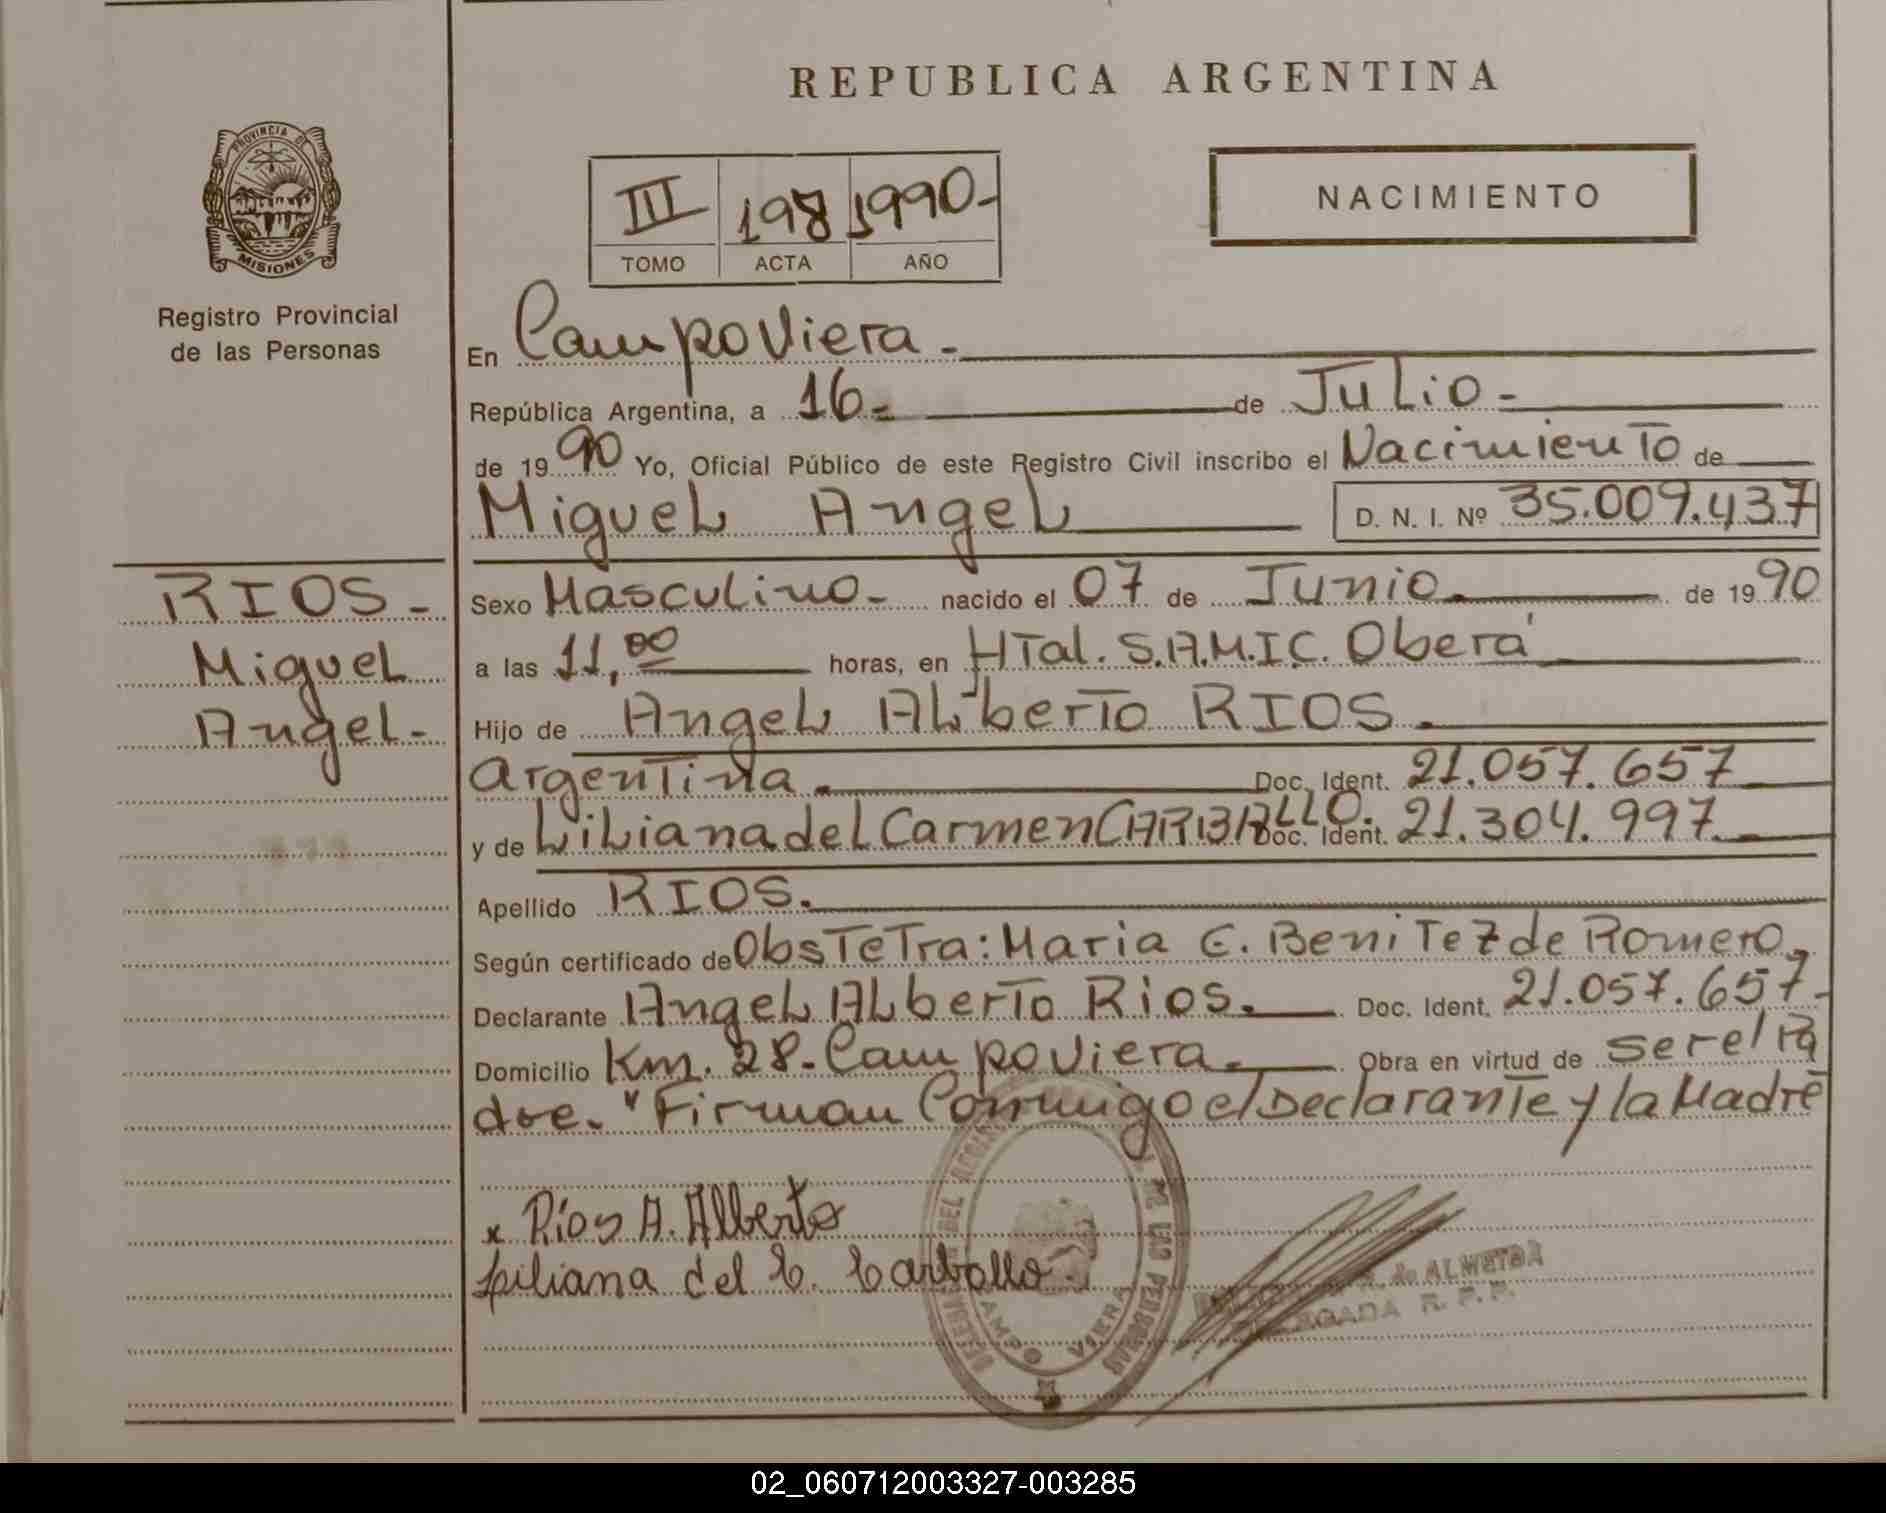 REPUBLICA ARGENTINA
PROVINCIA DE
MISIONES
Registro Provincial
de las Personas
III 198 1990-
TOMO ACTA AÑO
NACIMIENTO
En Campo Viera -
República Argentina, a 16- de Julio -
de 1990 Yo, Oficial Público de este Registro Civil inscribo el Nacimiento de
Miguel Angel D. N. I. Nº 35.009.437
RIOS -
Miguel
Angel -
Sexo Masculino - nacido el 07 de Junio. de 1990
a las 11,00 horas, en HTal. S.A.M.I.C. Oberá
Hijo de Angel Alberto RIOS.
Argentina. Doc. Ident. 21.057.657
y de Liliana del Carmen CARBALLO. Doc. Ident. 21.304.997
Apellido RIOS.
Según certificado de Obstetra: Maria E. Benitez de Romero.
Declarante Angel Alberto Rios. Doc. Ident. 21.057.657-
Domicilio Km. 28- Campo Viera. Obra en virtud de ser el Pa
dre. "Firman Conmigo el Declarante y la Madre
x Ríos A. Alberto
Liliana del C. Carballo.
DEL
DE LAS PERSONAS
CAMPO VIERA
de ALMEIDA
R. P. P.
02_060712003327-003285